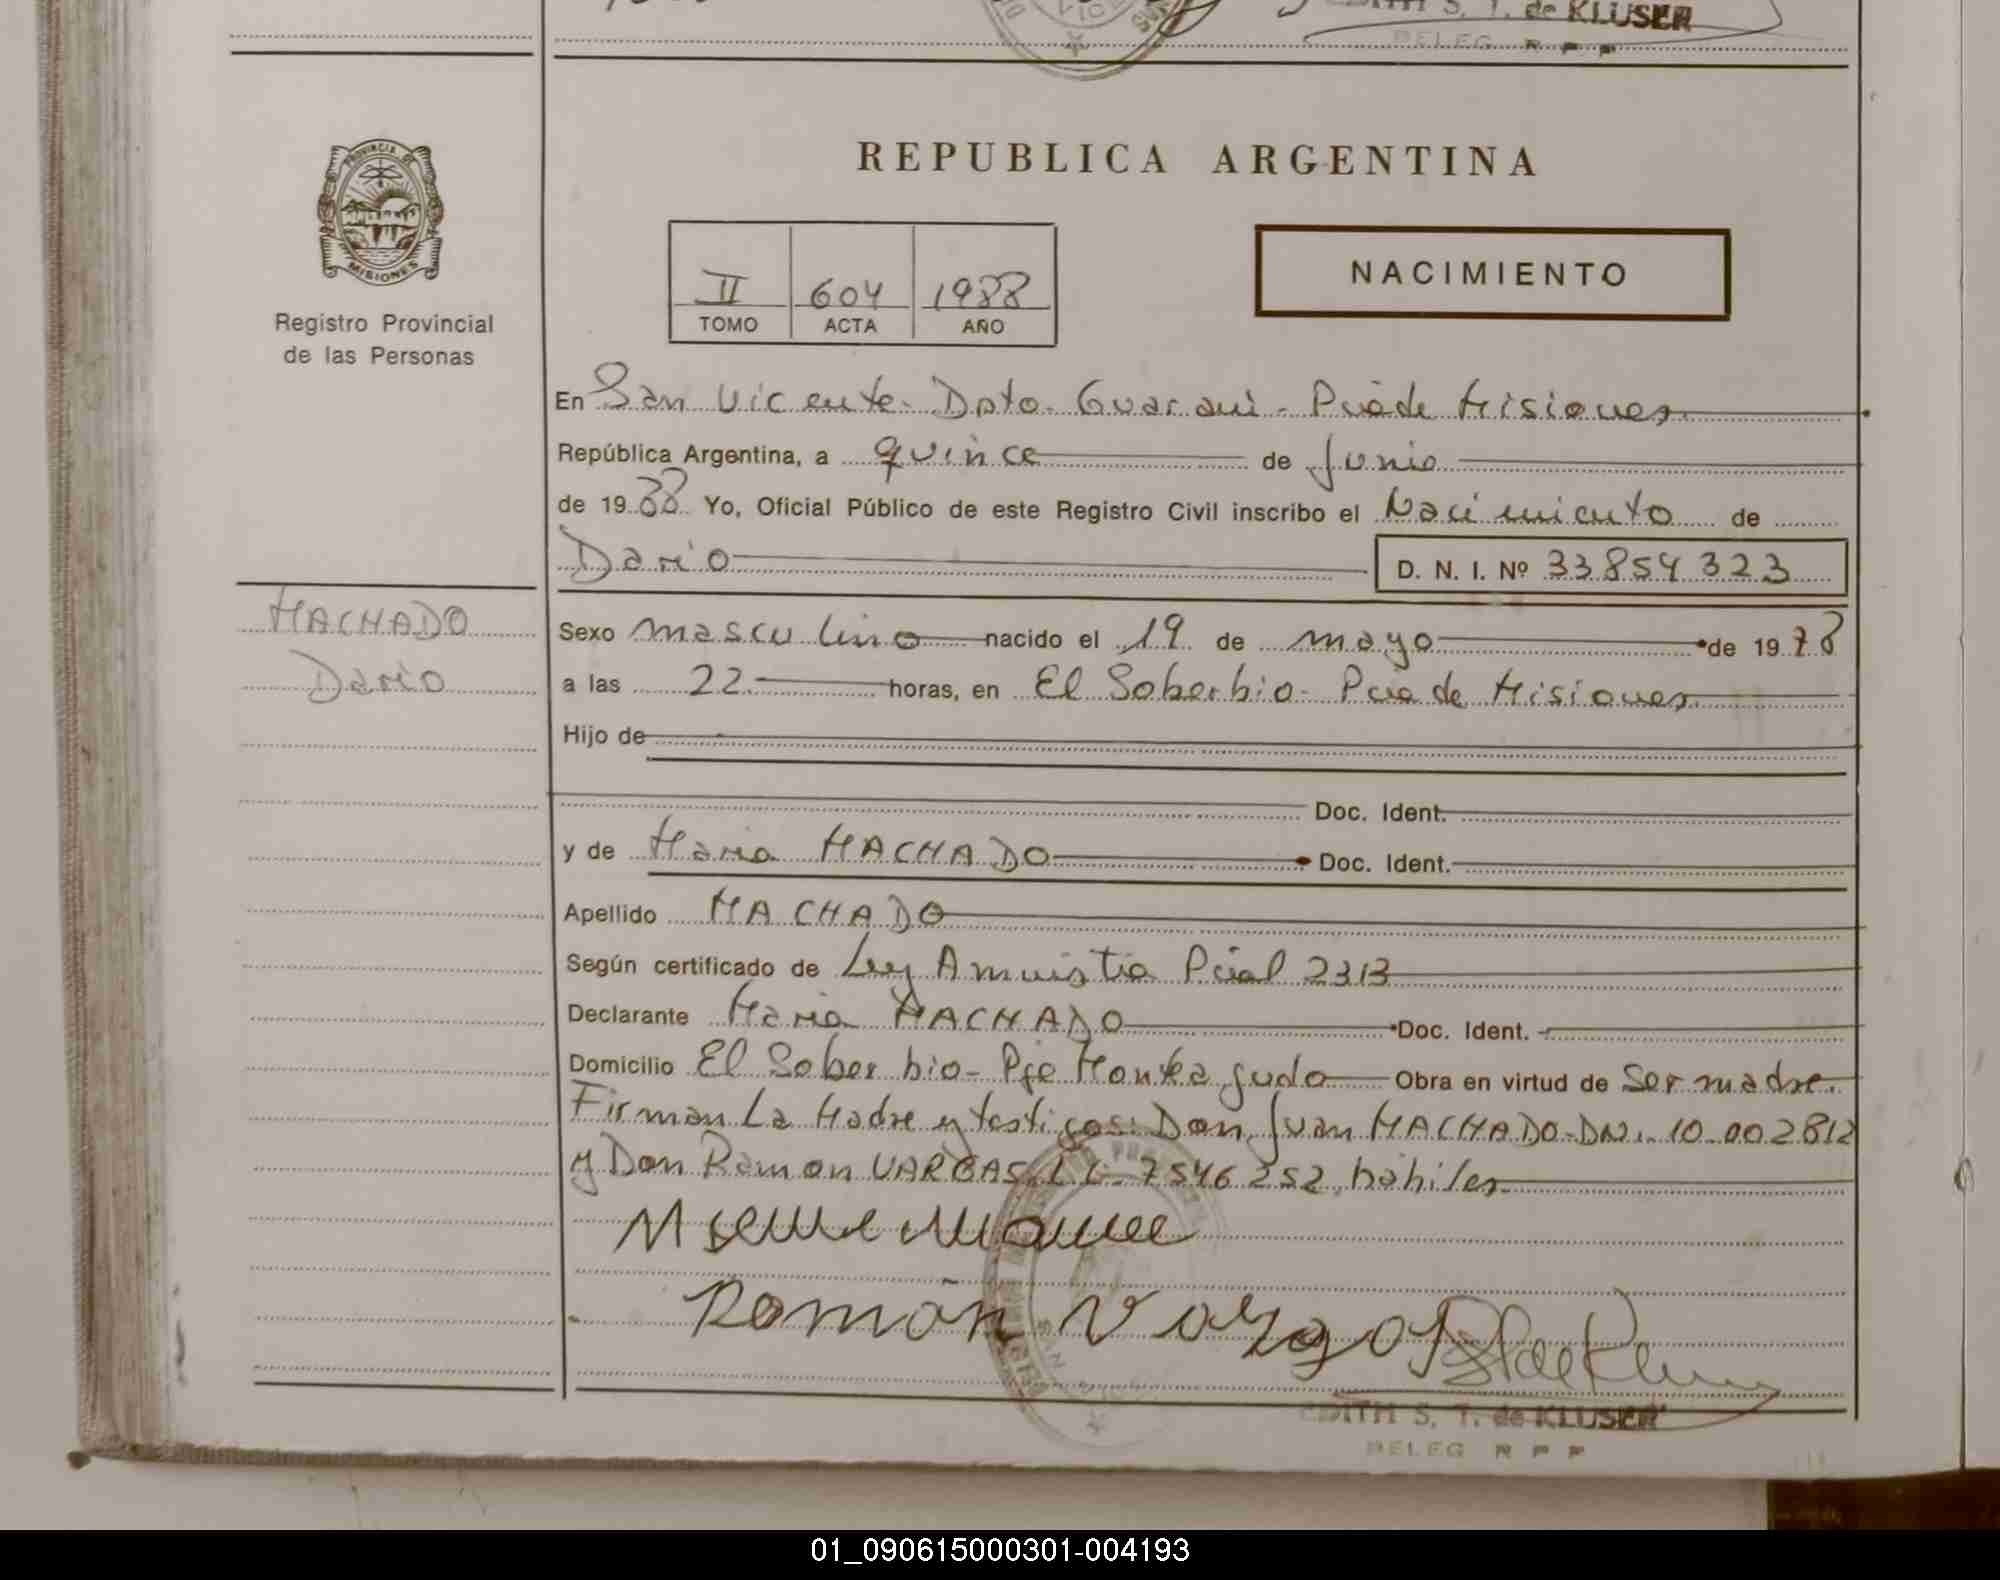 EDITH S. T. de KLUSER
DELEG R P P
PROVINCIA DE
MISIONES
Registro Provincial
de las Personas
REPUBLICA ARGENTINA
II 604 1988
TOMO ACTA AÑO
NACIMIENTO
En San Vicente- Dpto- Guarani- Pcia de Misiones.
República Argentina, a quince de Junio
de 1988 Yo, Oficial Público de este Registro Civil inscribo el Nacimiento de
Dario D. N. I. Nº 33854323
MACHADO
Dario
Sexo masculino nacido el 19 de mayo de 1978
a las 22. horas, en El Soberbio- Pcia de Misiones.
Hijo de
Doc. Ident.
y de Maria MACHADO Doc. Ident.
Apellido MACHADO
Según certificado de Ley Amnistia Pcial 2313
Declarante Maria MACHADO Doc. Ident.
Domicilio El Soberbio- Pje Monteagudo Obra en virtud de Ser madre.
Firman La Madre y testigos: Don Juan MACHADO- DNI. 10.002812
y Don Ramon VARGAS. L.E. 7546252, habiles.
Román Vargas
EDITH S. T. de KLUSER
DELEG R P P
01_090615000301-004193